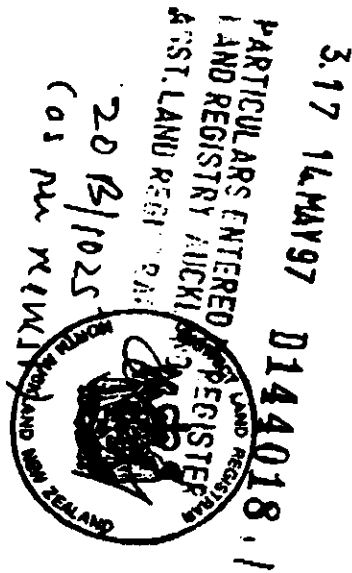 3.17 14.MAY97 D144018.1
PARTICULARS ENTERED REGISTER
LAND REGISTRY AUCKL
ASST. LAND REGI RAR
20 B/1025
(as per
DISTRICT LAND REGISTRAR
NORTH AUCKLAND NEW ZEALAND